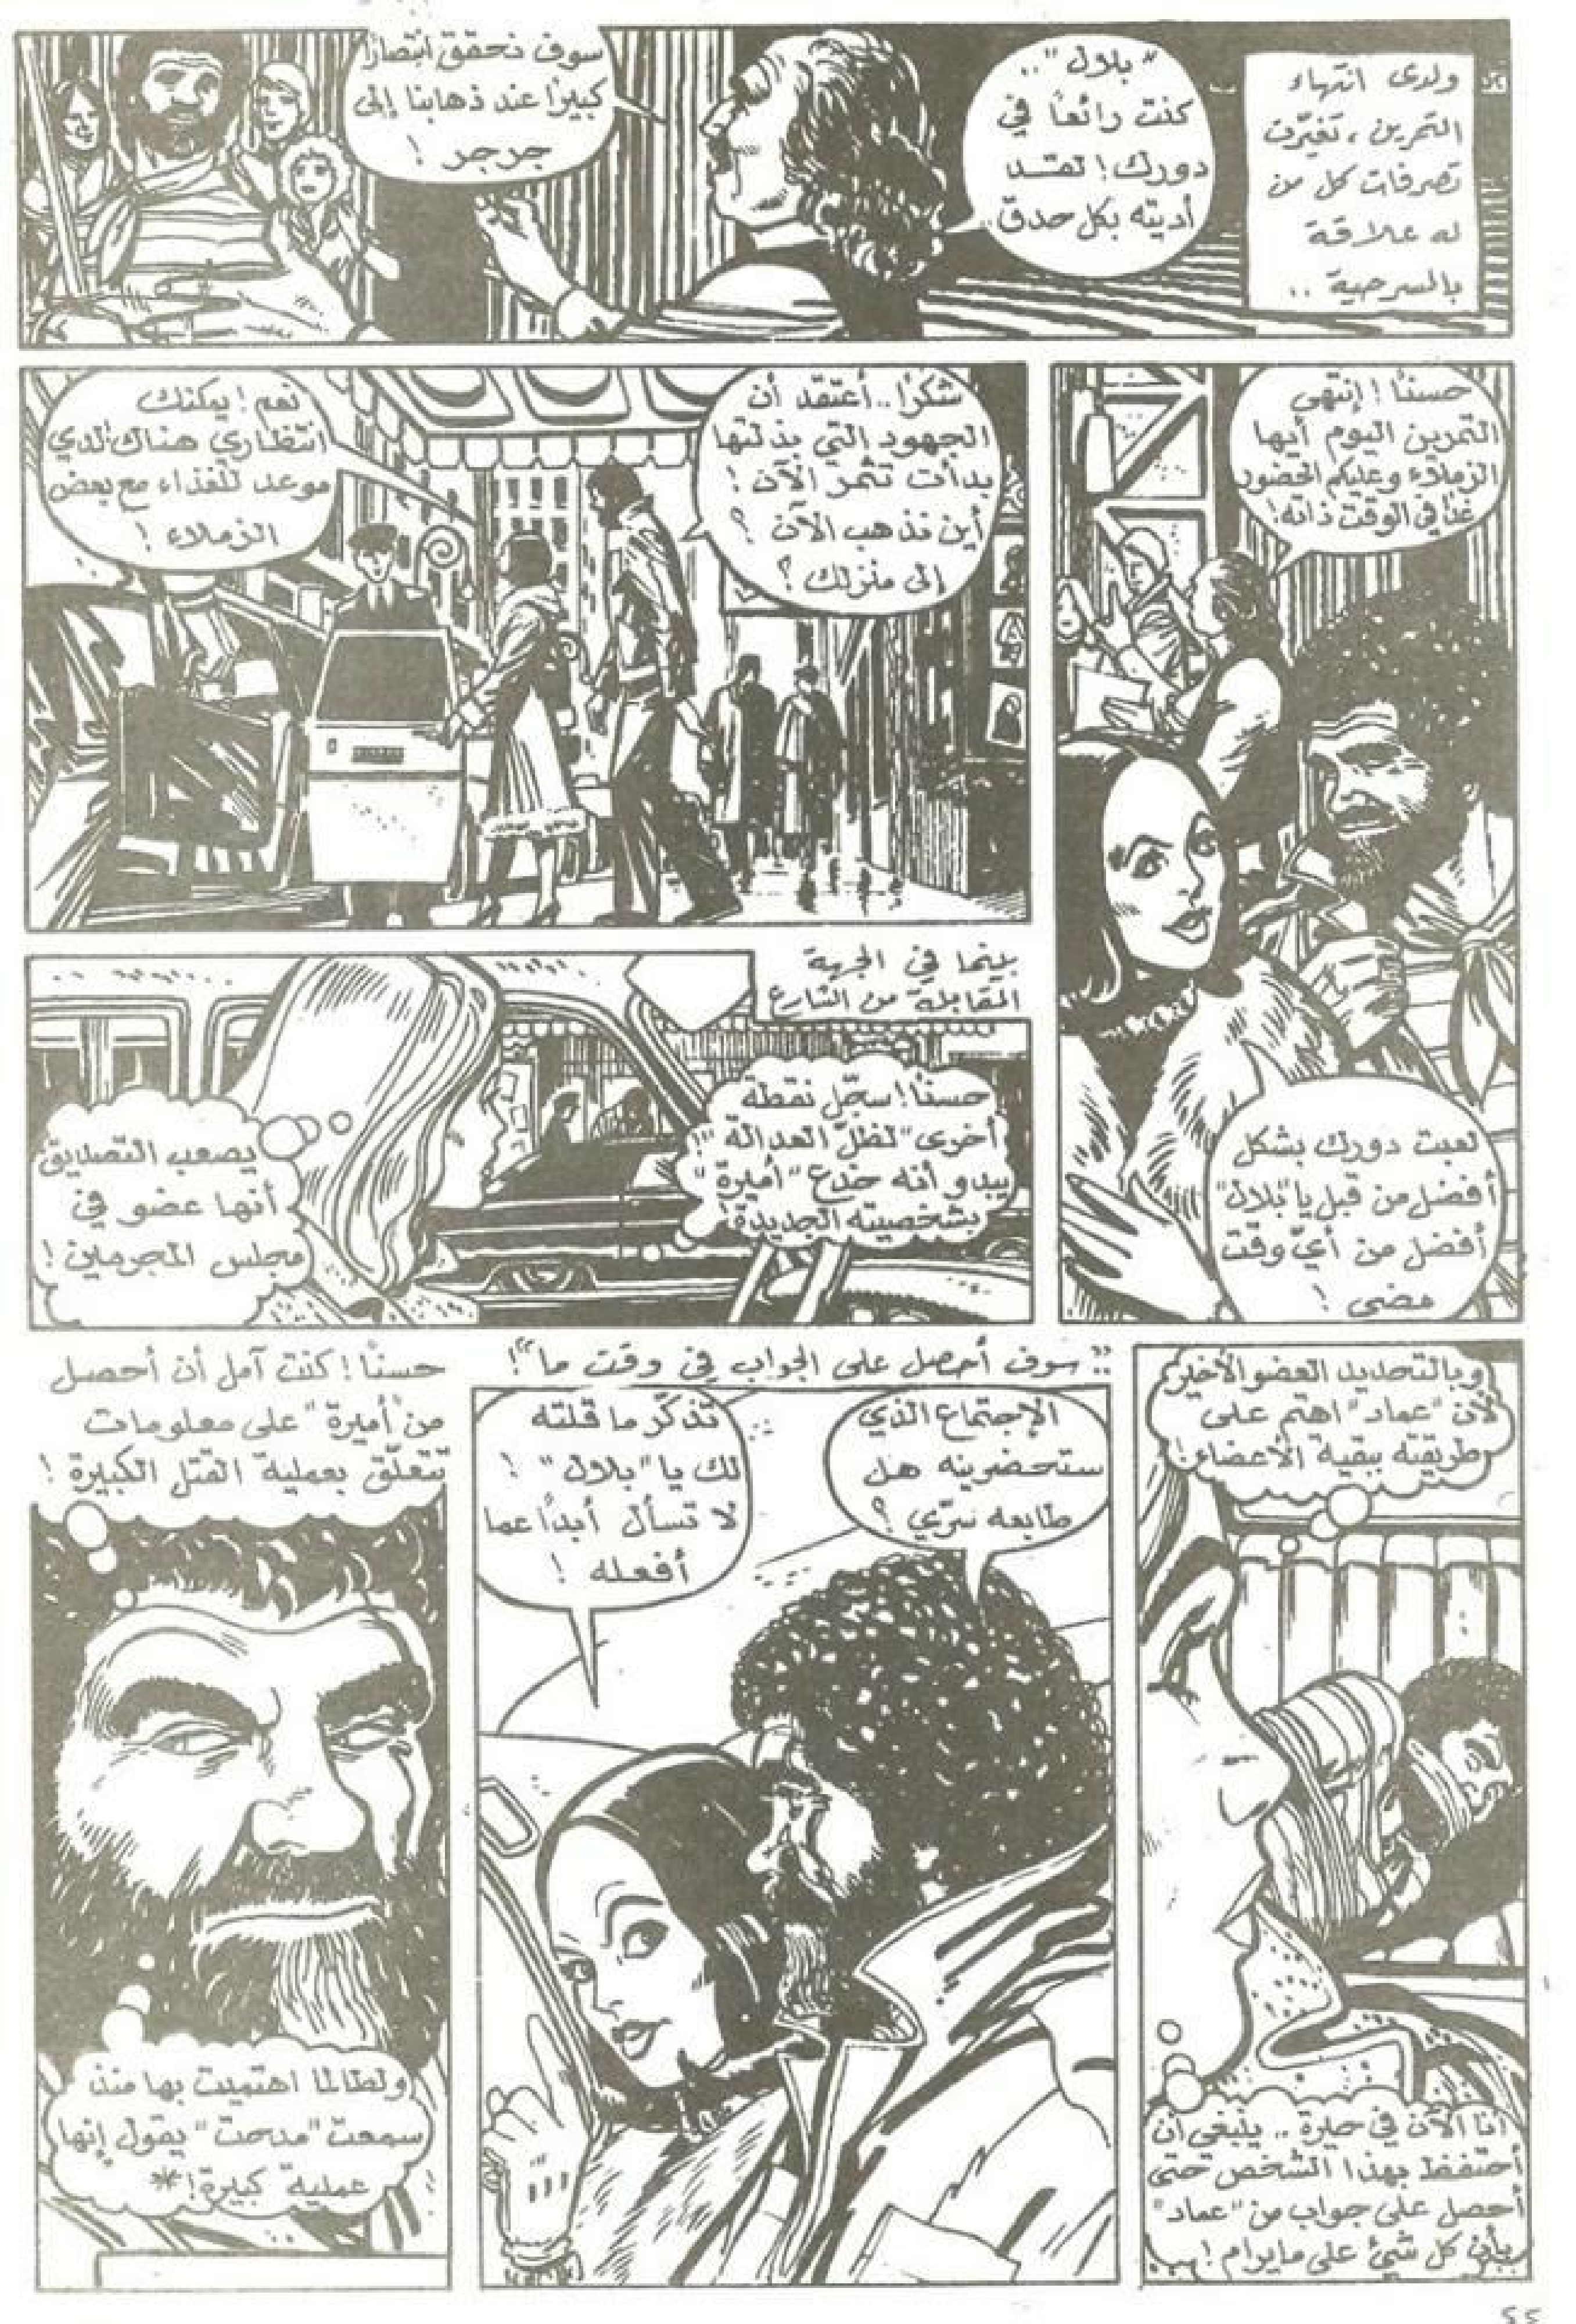 ولدى انتهاء
التمرين، تغيّرت
تصرفات كل من
له علاقة
بالمسرحية ..
"بلال"..
كنت رائعًا في
دورك! لقد
أديته بكل صدق..
سوف نحقق انتصارًا
كبيرًا عند ذهابنا إلى
جرجر!
حسنًا! إنتهى
التمرين اليوم أيها
الزملاء وعليكم الحضور
غدًا في الوقت ذاته!
لعبت دورك بشكل
أفضل من قبل يا "بلال"
أفضل من أيّ وقت
مضى!
شكرًا.. أعتقد أن
الجهود التي بذلتها
بدأت تثمر الآن!
أين نذهب الآن؟
إلى منزلك؟
نعم! يمكنك
انتظاري هناك! لدي
موعد للغذاء مع بعض
الزملاء!
بينما في الجهة
المقابلة من الشارع
حسنًا! سجّل نقطة
أخرى "لظلّ العدالة"!
يبدو أنه خدع "أميرة"
بشخصيته الجديدة!
يصعب التصديق
أنها عضو في
مجلس المجرمين!
وبالتحديد العضو الأخير
لأن "عماد" اهتم على
طريقته ببقية الأعضاء!
أنا الآن في حيرة .. ينبغي أن
أحتفظ بهذا الشخص حتى
أحصل على جواب من "عماد"
بأن كل شيئ على ما يرام!..
:: سوف أحصل على الجواب في وقت ما"!
الإجتماع الذي
ستحضرينه هل
طابعه سرّي؟
تذكّر ما قلته
لك يا "بلال"!
لا تسأل أبدًا عما
أفعله!
حسنًا! كنت آمل أن أحصل
من "أميرة" على معلومات
تتعلّق بعملية القتل الكبيرة!
ولطالما اهتميت بها منذ
سمعت "مدحت" يقول إنها
عملية كبيرة!*
٤٤